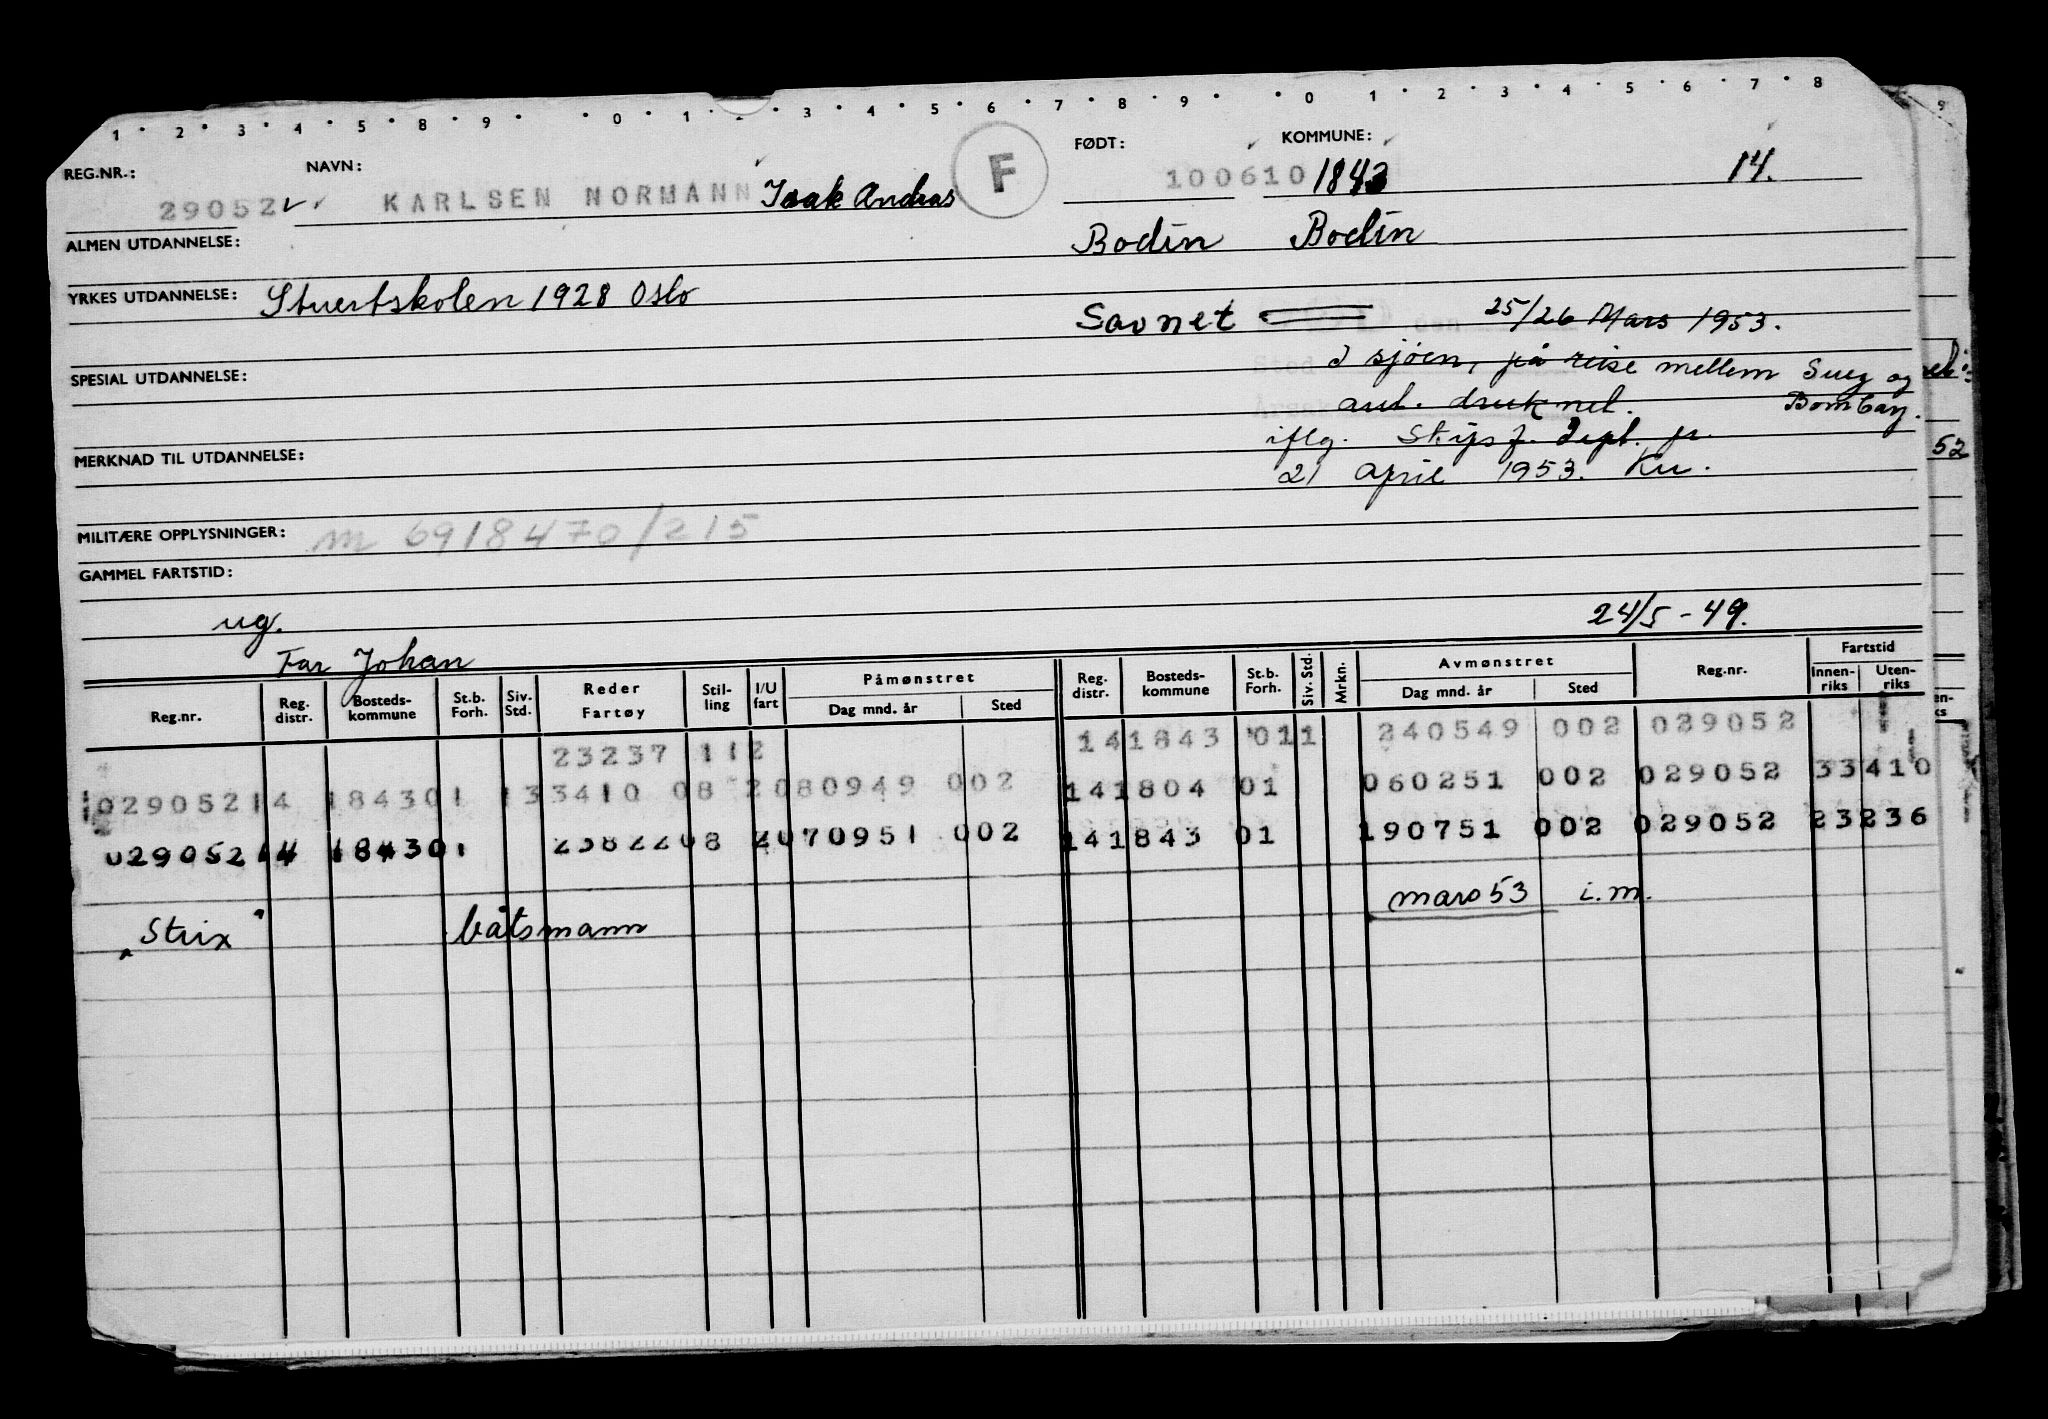 1 · 2 · 3 · 4 · 5 · 8 · 9 · · 0 · 1 · 3 · 4 · 5 · 6 · 7 · 8 · 9 · · 0 · 1 · 2 · 3 · 4 · 5 · 6 · 7 · 8
9
REG.NR.: NAVN: FØDT: KOMMUNE:
29052 KARLSEN NORMANN Isak Andreas F 100610 1843 14.
ALMEN UTDANNELSE: Bodin Bodin
YRKES UTDANNELSE: Stuertskolen 1928 Oslo
Savnet 25/26 Mars 1953.
SPESIAL UTDANNELSE: I sjøen, på reise mellem Suez og
ant. druknet. Bombay.
MERKNAD TIL UTDANNELSE: iflg. Skipsf. Dept. pr.
21 april 1953. Ku.
52
MILITÆRE OPPLYSNINGER: m 6918470/215
GAMMEL FARTSTID:
ug. 24/5-49.
Far Johan
Reg.nr. Reg. distr. Bosteds-kommune St.b. Forh. Siv. Std. Reder Fartøy Stil-ling I/U fart Påmønstret Dag mnd. år Sted Reg. distr. Bosteds-kommune St.b. Forh. Siv. Std. Mrkn. Avmønstret Dag mnd. år Sted Reg.nr. Fartstid Innen-riks Uten-riks
23237 112 141843 011 240549 002 029052
02905214 184301 133410 08 2080949 002 141804 01 060251 002 029052 33410
02905214 184301 2382208 2070951 002 141843 01 190751 002 029052 23236
"Strix" båtsmann mars 53 i.m.